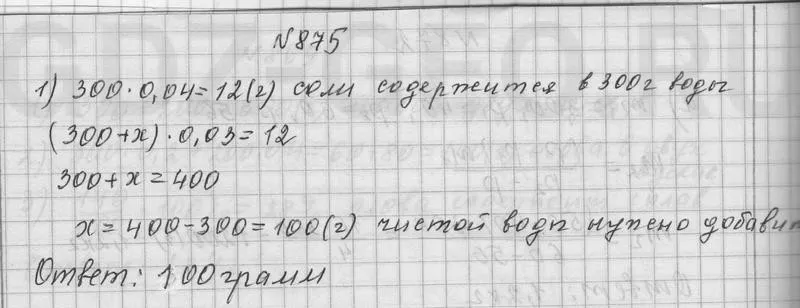 №875
1) 300 · 0,04 = 12 (г) соли содержится в 300 г воды
(300 + x) · 0,03 = 12
300 + x = 400
x = 400 - 300 = 100 (г) чистой воды нужно добавит
Ответ: 100 грамм